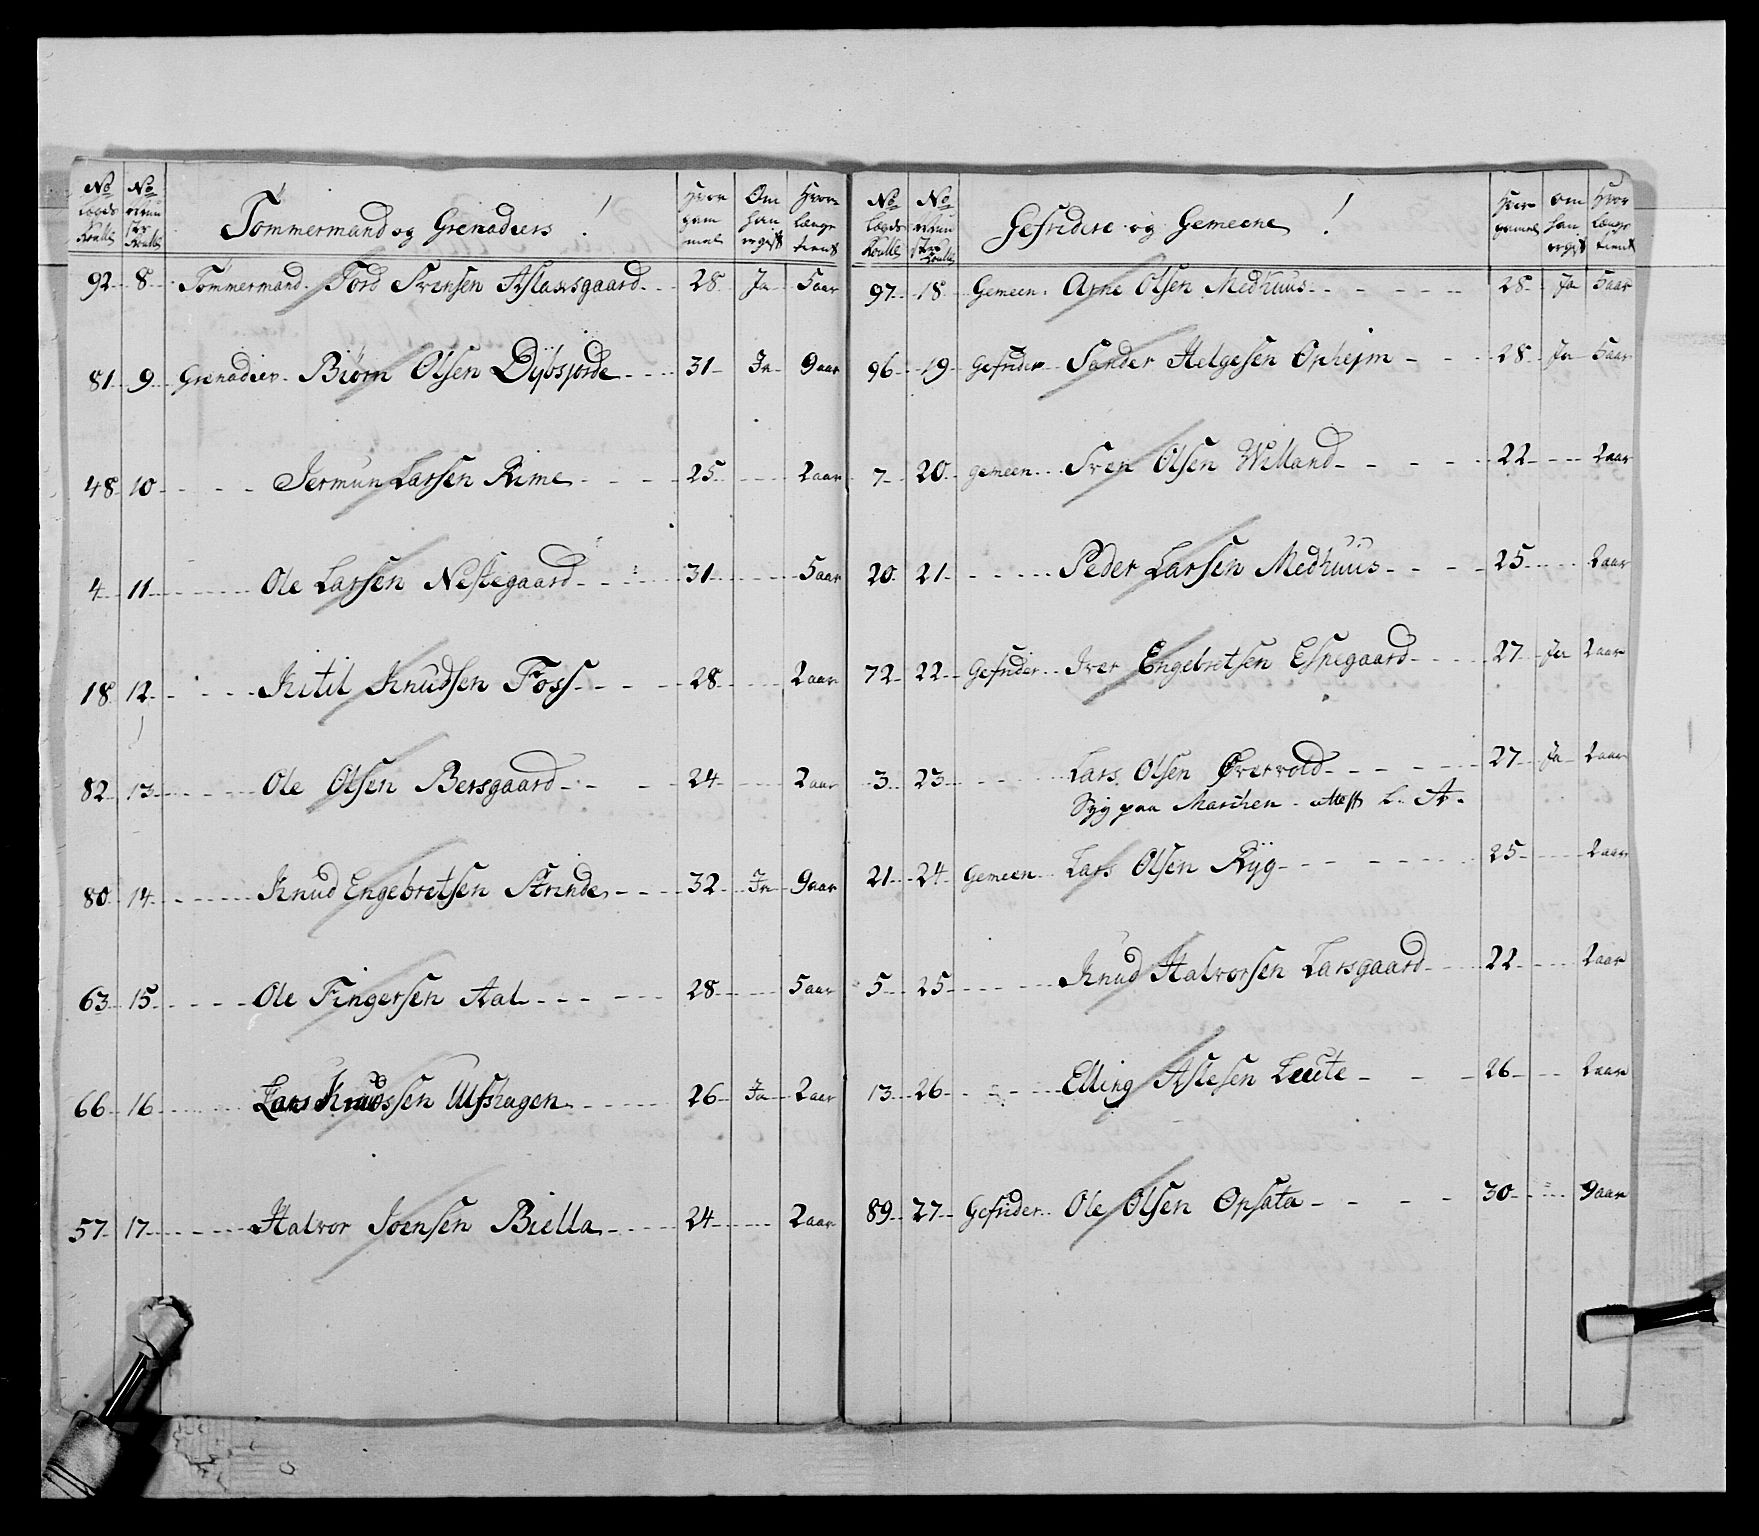 No No Hvor Om Hvor
Lægds gam han længe
Roulle Roulle mel ergift tient
Tømmermand og Grenadiers !
92 8 Tømmermand Tord Svensen Aslaksgaard 28 Ja 5 aar
81 9 Grenadier Biørn Olsen Dÿbsjorde 31 Ja 9 aar
48 10 Jermun Larsen Rime 25 2 aar
4 11 Ole Larsen Nestegaard 31 5 aar
18 12 Kitil Knudsen Foss 28 2 aar
82 13 Ole Olsen Bersgaard 24 2 aar
80 14 Knud Engebretsen Strinde 32 Ja 9 aar
63 15 Ole Fingersen Aal 28 5 aar
66 16 Lars Knudssen Ulfshagen 26 Ja 2 aar
57 17 Halvor Joensen Biella 24 2 aar
No No Hvor om Hvor
Lægds gamel han længe
Roulle Roulle ergift tient
Gefridere og Gemeene !
97 18 Gemeen Arne Olsen Medhuus 28 Ja 5 aar
96 19 Gefrider Sander Helgesen Opheim 28 Ja 5 aar
7 20 Gemeen Sven Olsen Villand 22 2 aar
20 21 Peder Larsen Medhuus 25 2 aar
72 22 Gefrider Iver Engebretsen Espegaard 27 Ja 2 aar
3 23 Lars Olsen Øvervold 27 Ja 2 aar
Syg paa Marchen L. A.
21 24 Gemeen Lars Olsen Rÿg 25 2 aar
5 25 Knud Halvorsen Larsgaard 22 2 aar
13 26 Elling Aslesen Leute 26 2 aar
89 27 Gefrider Ole Olsen Opsata 30 9 aar